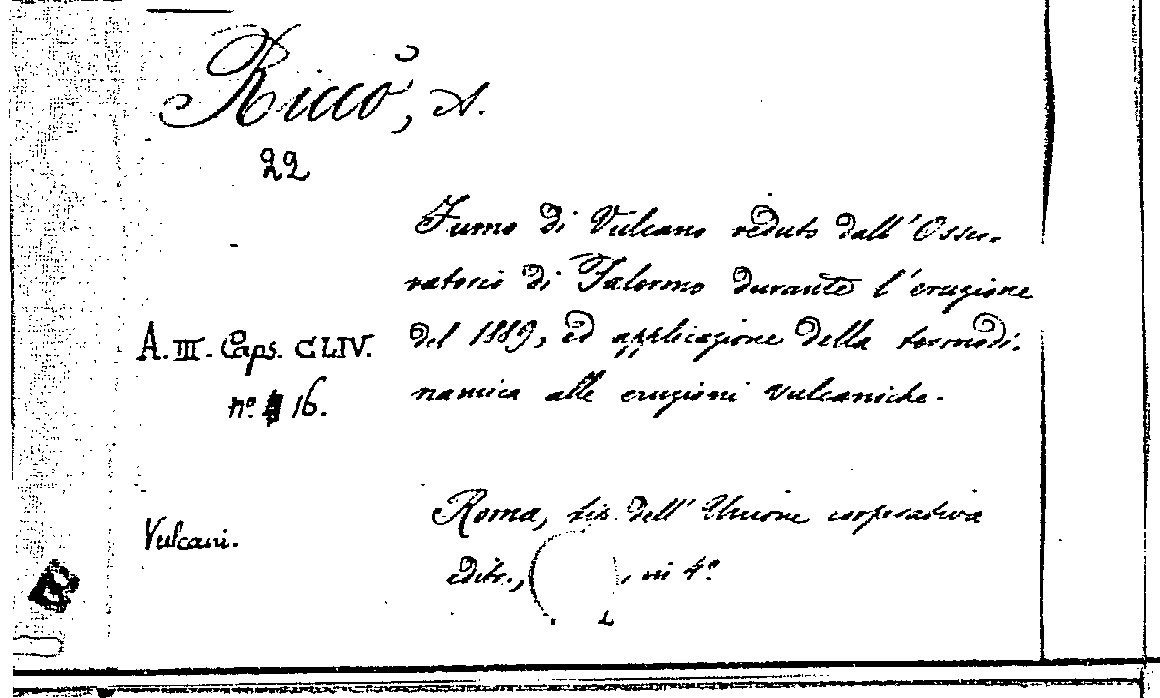 Riccò, A.
22
Fumo di Vulcano veduto dall'Osser-
vatorio di Palermo durante l'eruzione
del 1889, ed applicazione della termodi-
namica alle eruzioni vulcaniche.
A. III. Caps. CLIV.
nº. 16.
Vulcani.
Roma, tip. dell' Unione cooperativa
edit., , in 4º